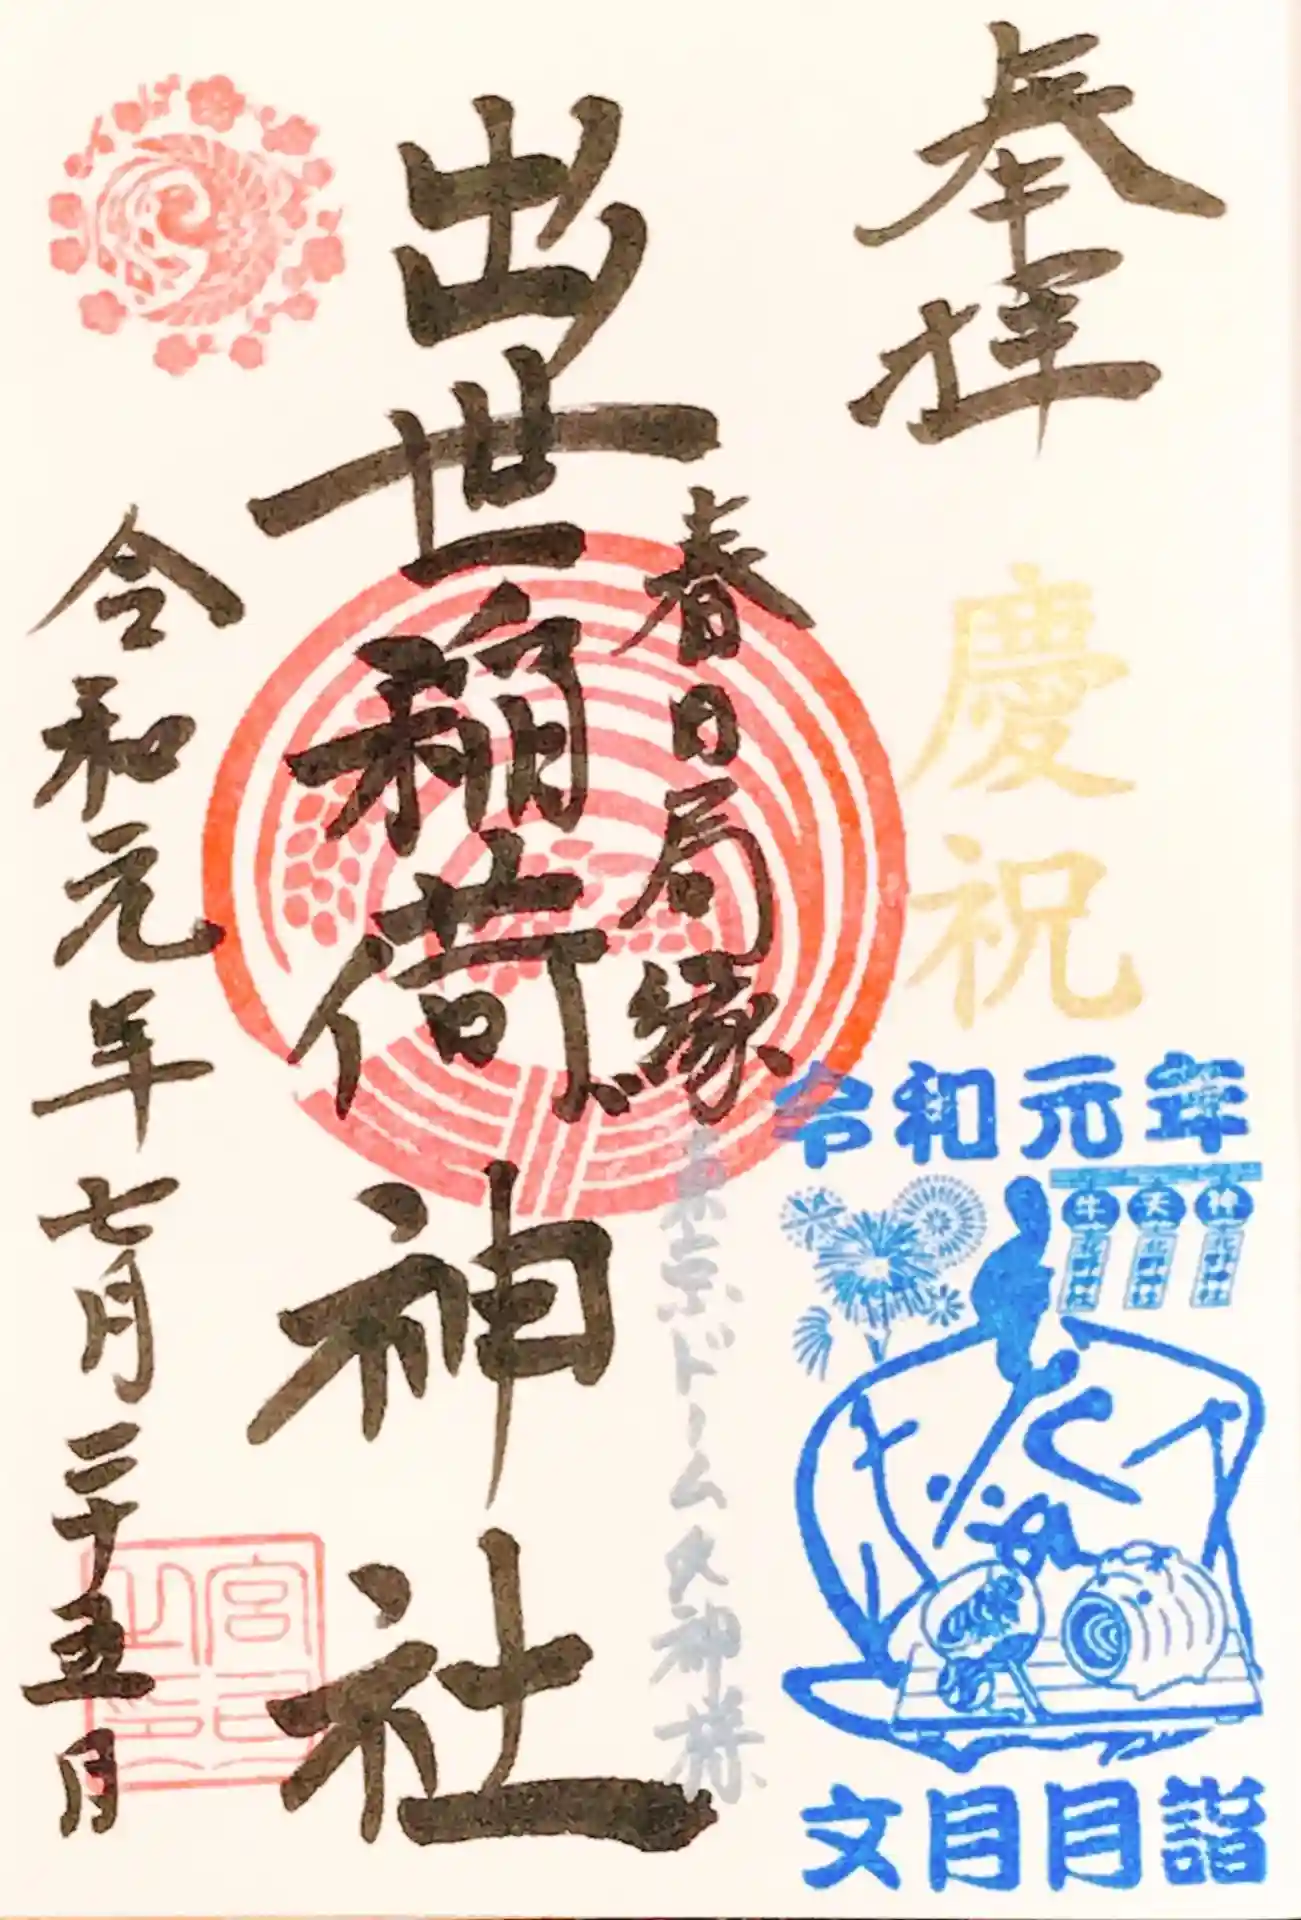 奉拝
慶祝
春日局縁
東京ドーム大神様
出世稲荷神社
令和元年七月二十五日
令和元年
牛
天
神
文月月詣
宮司
之印